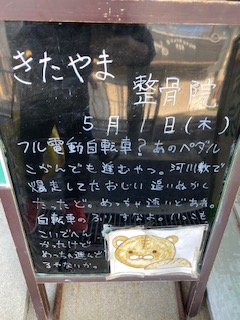 きたやま
整骨院
5月1日(木)
フル電動自転車?あのペダル
こがんでも進むやつ。河川敷で
爆走してたおじい追いぬかく
たったど。めっちゃ速いどあれ。
自転車のふりすなよ。いっこも
こいでへん
かったけど
めっちゃ進んど
るやないか。